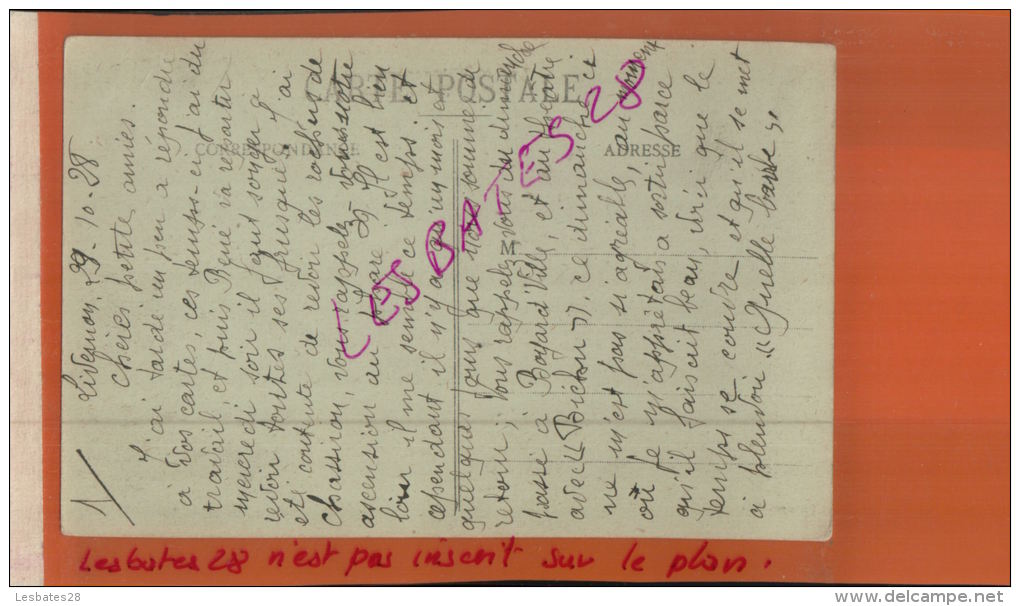 CARTE POSTALE
CORRESPONDANCE
ADRESSE
M
1/
29-10-28
Chères petite amies.
J'ai tardé un peu a répondre
a vos cartes, ces temps-ci j'ai du
travail, et puis René va repartir
mercredi soir il faut songer a
revoir toutes ses frusques. J'ai
été contente de revoir les rochers de
Chassiron, vous rappelez-vous notre
ascension au phare Il est bien
loin il me semble ce temps. et
cependant il n'y a qu'un mois et
quelques jours que nous sommes de
retour; vous rappelez vous du dimanche
passé a Boyard'Ville, et au théâtre
avec "Bichon". ce dimanche ci
ne m'est pas si agréable, au moment
où je m'apprêtais a sortir parce
qu'il faisait beau, voici que le
temps se couvre et qu'il se met
a pleuvoir. "Quelle barbe".
LES BATES 28
Lesbates28 n'est pas inscrit sur le plan.
Lesbates28
www.delcampe.net